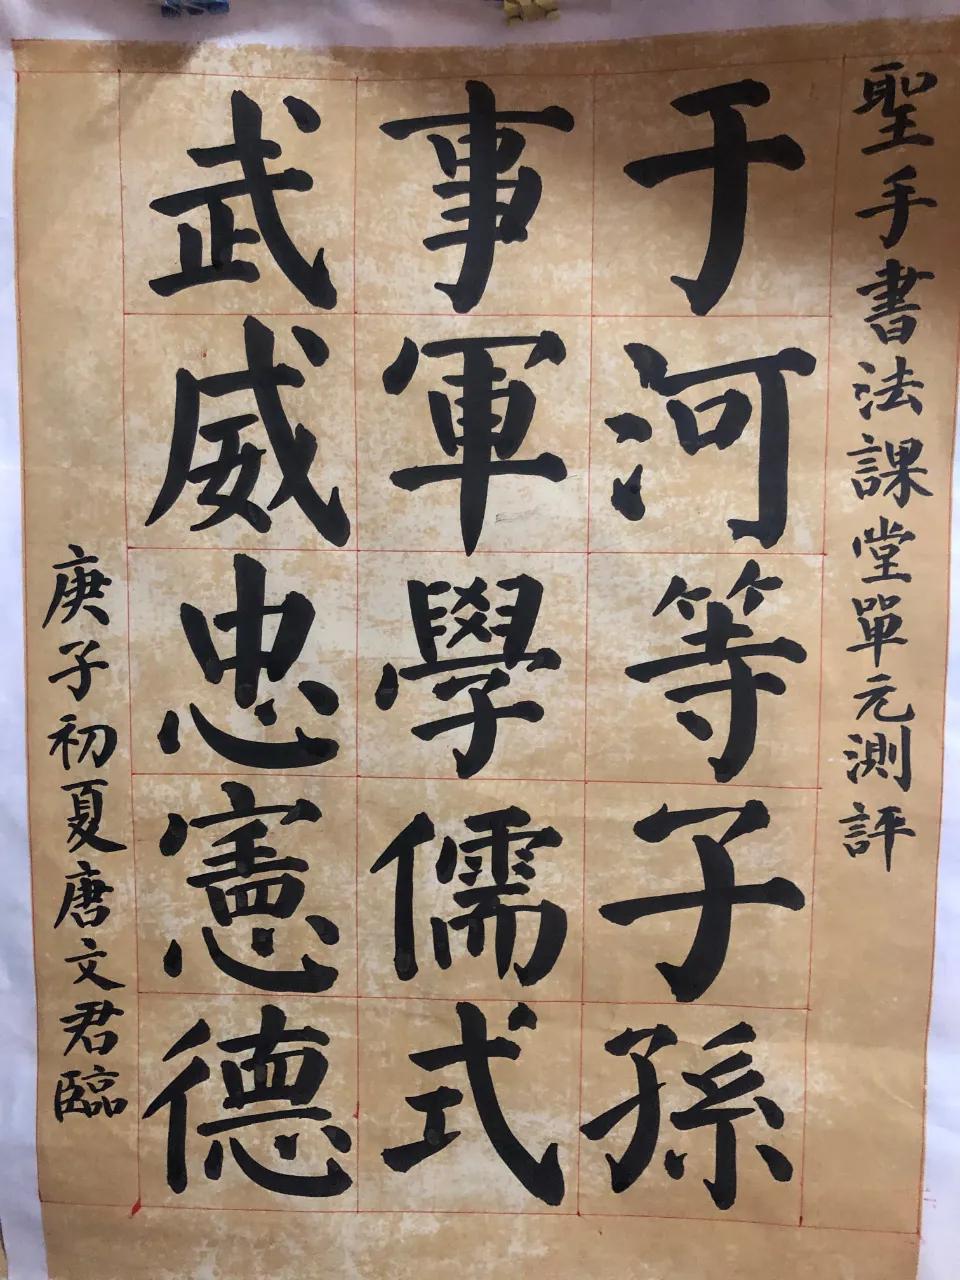 聖手書法課堂單元測評
于河等子孫
事軍學儒式
武威忠憲德
庚子初夏唐文君臨